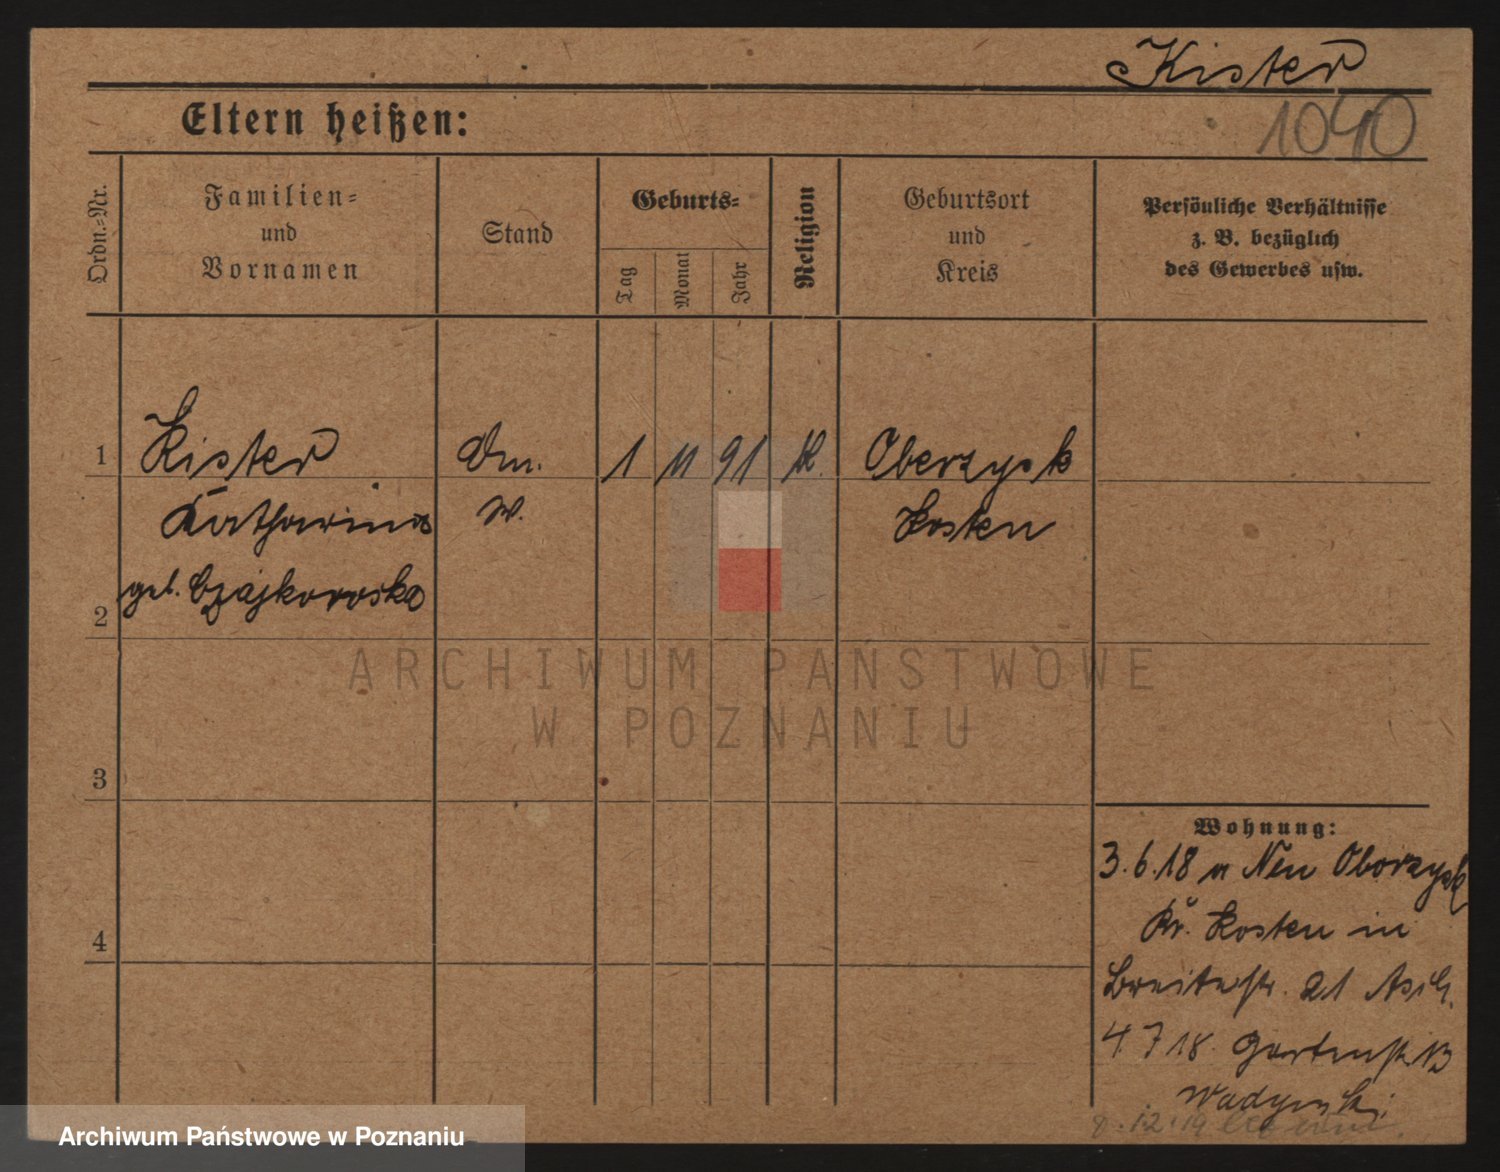 Kister
1040
Eltern heißen:
Ordn.-Nr.
Familien-
und
Vornamen
Stand
Geburts-
Tag
Monat
Jahr
Religion
Geburtsort
und
Kreis
Persönliche Verhältnisse
z. B. bezüglich
des Gewerbes usw.
1 Kister 1 11 91 K. Oberzysk
Katharina w. Kosten
geb. Czajkowska
2
ARCHIWUM PAŃSTWOWE
W POZNANIU
3
Wohnung:
3.6.18 Neu Oborzysk
4 Kr. Kosten in
Breitestr. 21
4 7 18. Gartenstr. 13
8.12.19
Archiwum Państwowe w Poznaniu